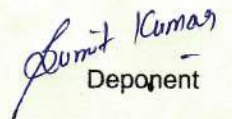 Sumit Kumar
Deponent